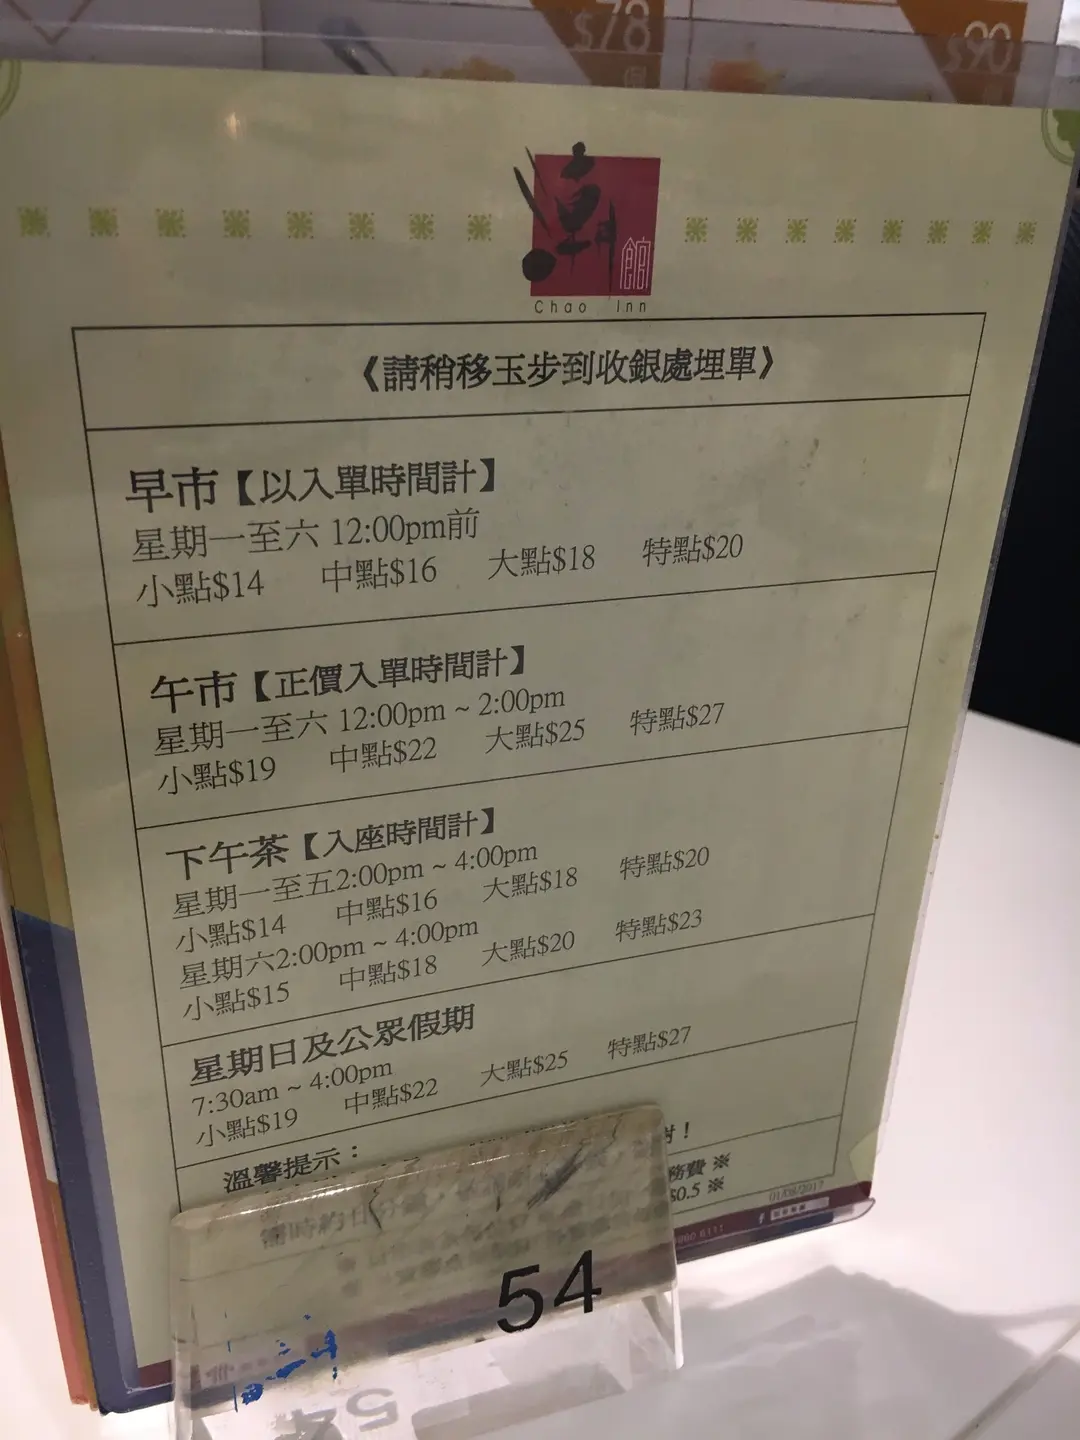 $78
$90
潮
館
Chao Inn
《請稍移玉步到收銀處埋單》
早市【以入單時間計】
星期一至六 12:00pm前
小點$14 中點$16 大點$18 特點$20
午市【正價入單時間計】
星期一至六 12:00pm ~ 2:00pm
小點$19 中點$22 大點$25 特點$27
下午茶【入座時間計】
星期一至五2:00pm ~ 4:00pm
小點$14 中點$16 大點$18 特點$20
星期六2:00pm ~ 4:00pm
小點$15 中點$18 大點$20 特點$23
星期日及公眾假期
7:30am ~ 4:00pm
小點$19 中點$22 大點$25 特點$27
溫馨提示：
務費 ※
$0.5 ※
01/08/2017
6111
54